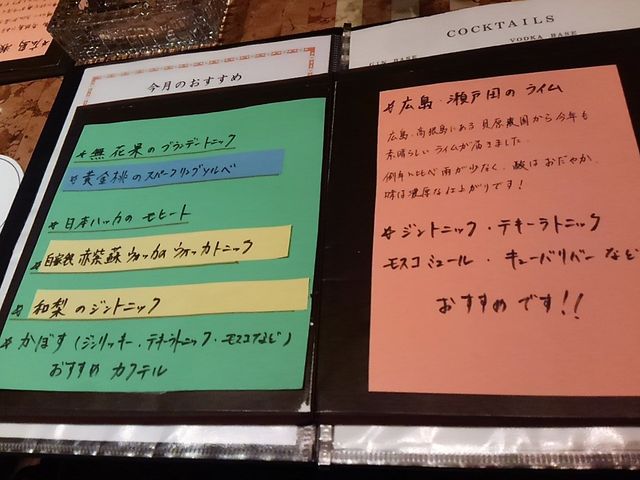 今月のおすすめ
*無花果のブランデートニック
*黄金桃のスパークリングソルベ
*日本ハッカのモヒート
*自家製 赤紫蘇ウォッカのウォッカトニック
*和梨のジントニック
*かぼす(ジンリッキー・テキーラトニック・モスコなど)
おすすめカクテル
COCKTAILS
GIN BASE
VODKA BASE
*広島・瀬戸田のライム
広島・高根島にある 貝原農園から今年も
素晴らしいライムが届きました。
例年に比べ雨が少なく、酸はおだやか、
味は濃厚な仕上がりです!
*ジントニック・テキーラトニック
モスコミュール・キューバリバーなど
おすすめです!!